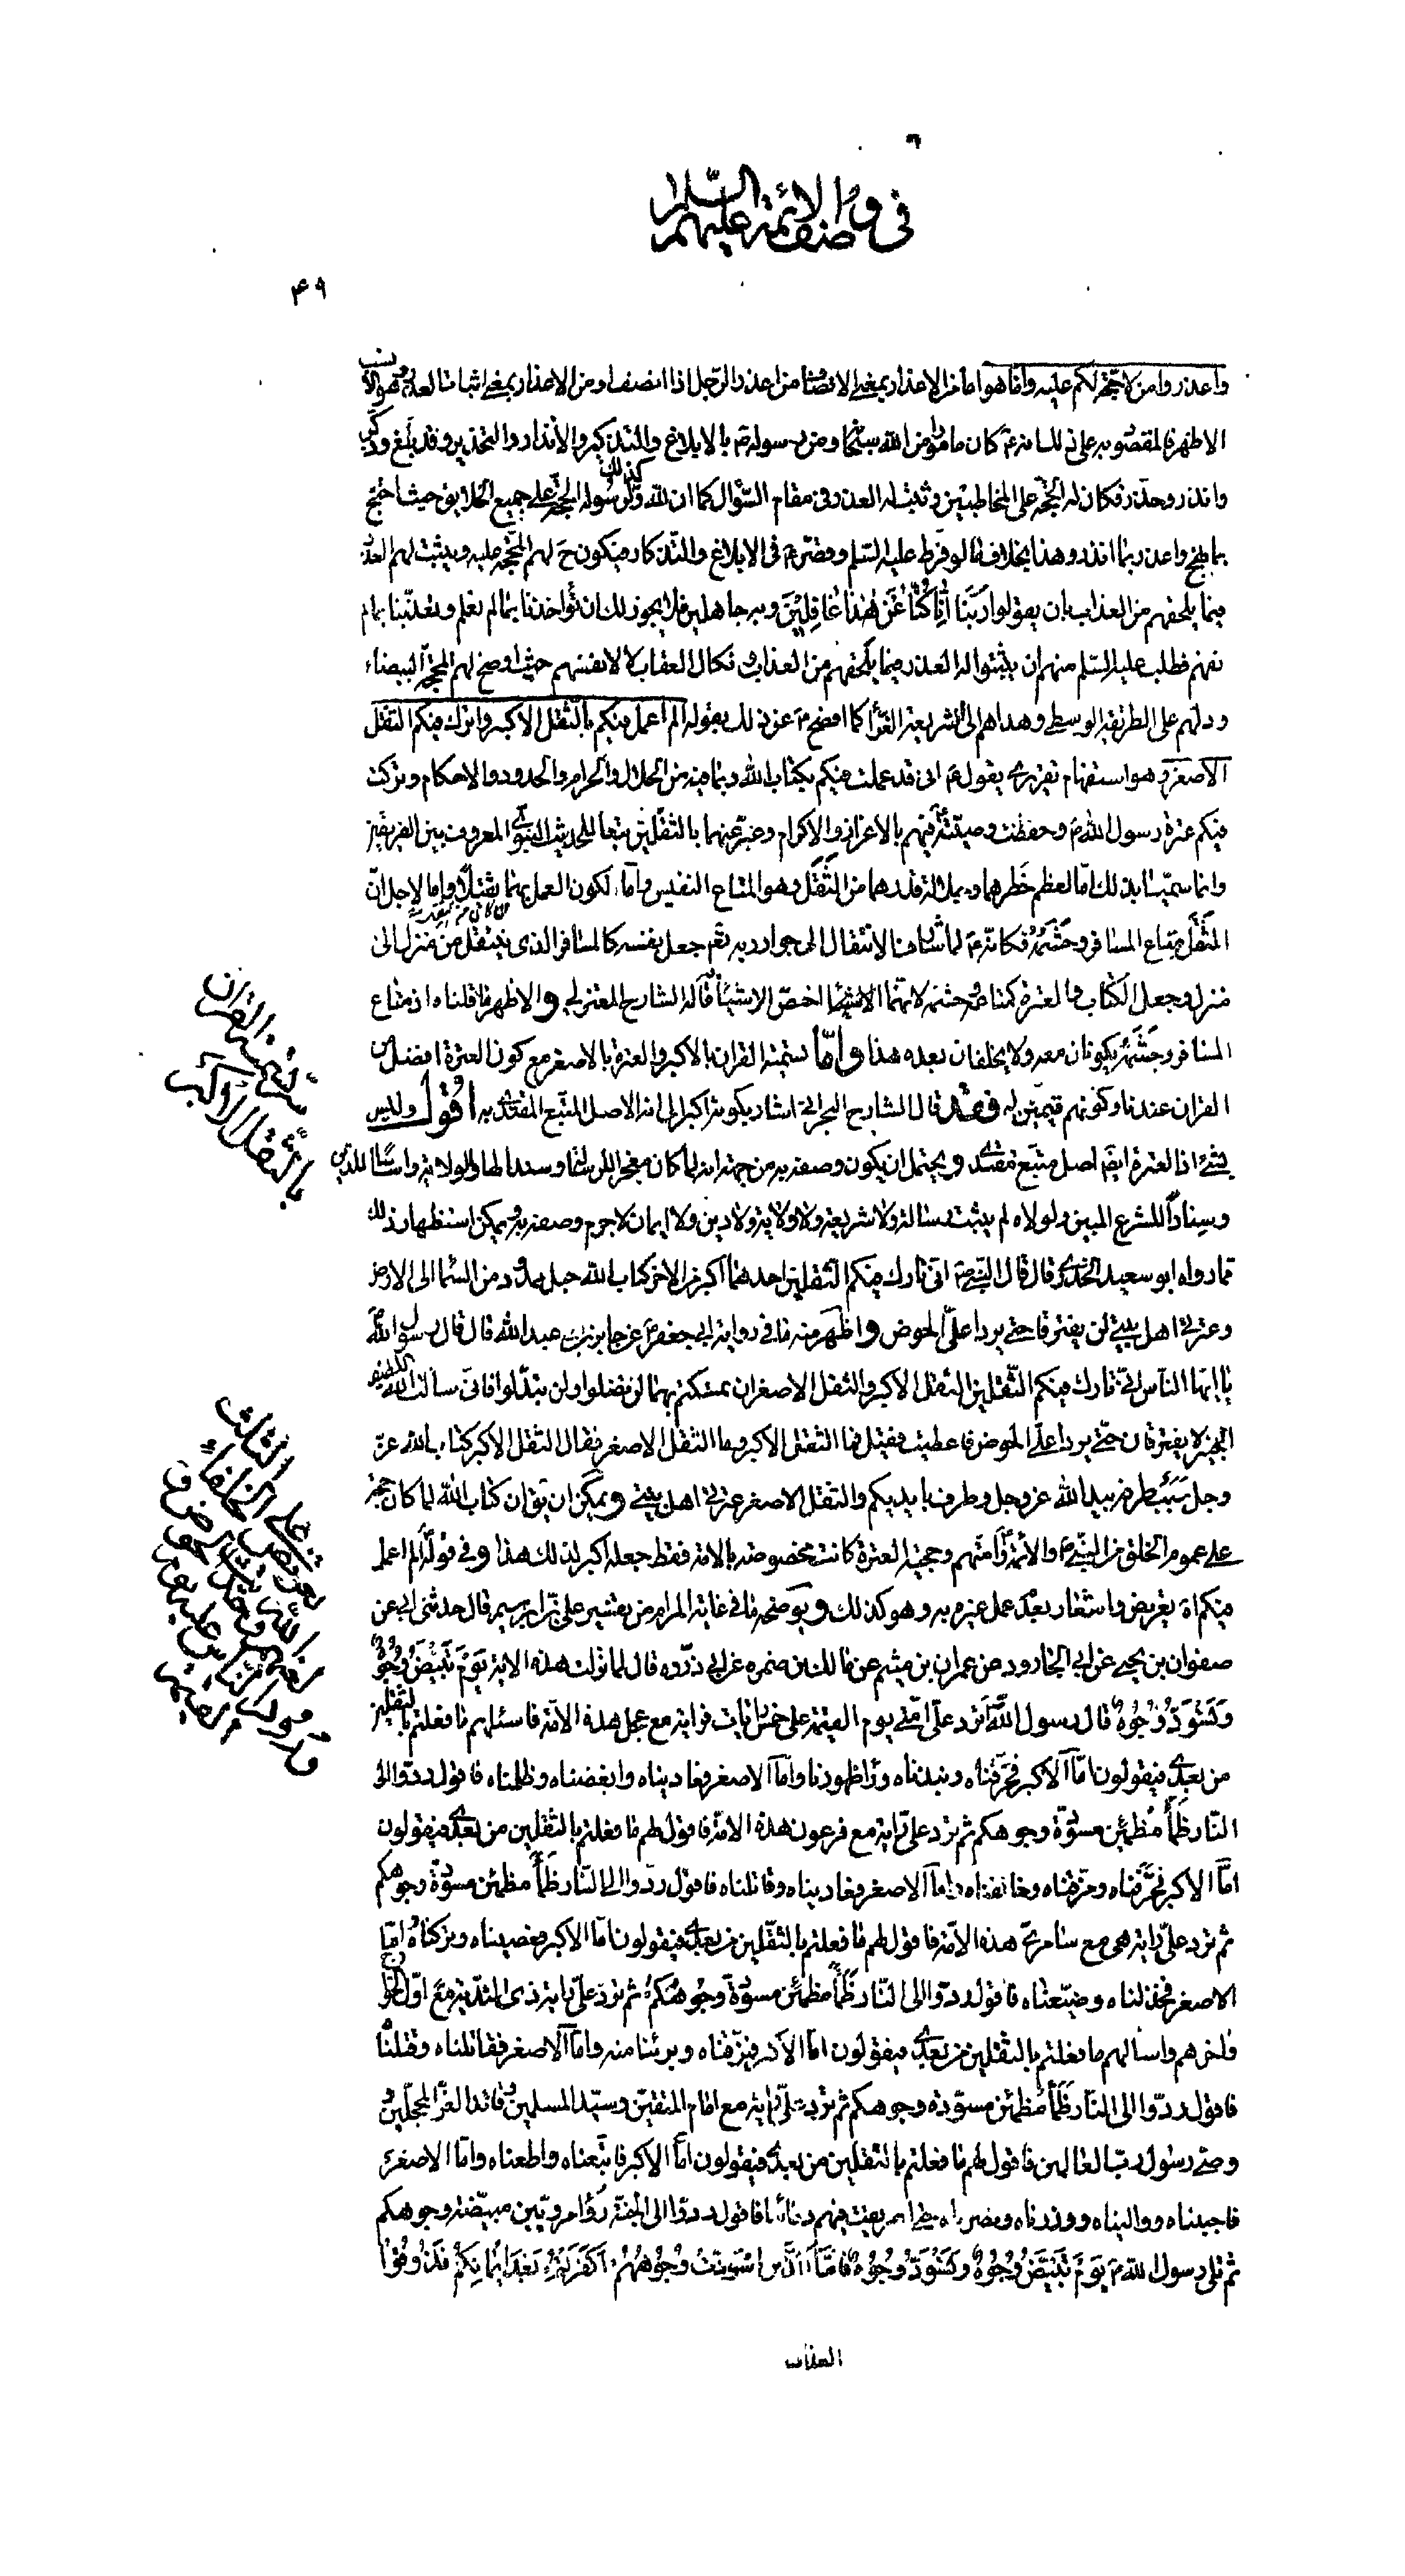 في وصف الائمة عليهم السلام
۴۹
واعذروا من لا حجة لكم عليه وانا هو اما من الاعذار بمعنى الانصاف من اعذر الرجل اذا انصف او من الاعذار بمعنى اثبات العذر وهو الانسب
الاظهر والمقصود به على ذلك انه ع كان مامورا من الله سبحانه ومن رسوله ص بالابلاغ والتذكير والانذار والتحذير وقد بلغ وذكر
وانذر وحذر فكان له الحجة على المخاطبين وثبت له العذر في مقام السؤال كما ان لله ولرسوله كذلك الحجة على جميع الخلايق حيث احتج
بما نهج واعذر بما انذر وهذا بخلاف ما لو فرط عليه السلم وقصر ع في الابلاغ والتذكار فيكون ح لهم الحجة عليه ويثبت لهم العذر
فيما يلحقهم من العذاب بان يقولوا ربنا انا كنا عن هذا غافلين وبه جاهلين فلا يجوز لك ان تؤاخذنا بما لم نعلم وتعذبنا بما لم
نفهم فطلب عليه السلم منهم ان يثبتوا له العذر فيما يلحقهم من العذاب ونكال العقاب لا لانفسهم حيث اوضح لهم المحجة البيضاء
ودلهم على الطريقة الوسطى وهداهم الى الشريعة الغراء كما افصح ع عن ذلك بقوله الم اعمل فيكم بالثقل الاكبر واترك فيكم الثقل
الاصغر وهو استفهام تقريري يقول ع اني قد عملت فيكم بكتاب الله وبما فيه من الحلال والحرام والحدود والاحكام وتركت
فيكم عترة رسول الله ص وحفظت وصيته فيهم بالاعزاز والاكرام وعبر عنهما بالثقلين تبعا للحديث النبوي المعروف بين الفريقين
وانما سميا بذلك اما لعظم خطرهما وجلالة قدرهما من الثقل وهو المتاع النفيس واما لكون العمل بهما ثقيلا واما لاجل ان
الثقل متاع المسافر وحشمه فكانه ع لما شارف الانتقال الى جوار ربه تعم جعل نفسه كالمسافر الذي ينتقل من منزل الى
منزل وجعل الكتاب والعترة كمتاعه وحشمه لانهما اخص الاشياء به قاله الشارح المعتزلي والاظهر ما قلناه اذ متاع
المسافر وحشمه يكونان معه ولا يخلفان بعده هذا واما تسمية القران بالاكبر والعترة بالاصغر مع كون العترة افضل من
القران عندنا وكونهم قيمين له فقد قال الشارح البحراني اشار بكونه اكبر الى انه الاصل المتبع المقتدى به اقول وليس
بشيء اذ العترة ايضا اصل متبع مقتدى ويحتمل ان يكون وصفه به من جهة انه لما كان معجز اللرسالة وسندا لها والولاية واساسا للدين
وسنادا للشرع المبين ولولاه لم يثبت رسالة ولا شريعة ولا ولاية ولا دين ولا ايمان لا جرم وصفه به ويمكن استظهار ذلك
مما رواه ابو سعيد الخدري قال قال النبي ص اني تارك فيكم الثقلين احدهما اكبر من الاخر كتاب الله حبل ممدود من السماء الى الارض
وعترتي اهل بيتي لن يفترقا حتى يردا علي الحوض واظهر منه ما في رواية ابي جعفر ع عن جابر بن عبد الله قال قال رسول الله ص
يا ايها الناس اني تارك فيكم الثقلين الثقل الاكبر والثقل الاصغر ان تمسكتم بهما لن تضلوا ولن تبدلوا فاني سالت الله اللطيف
الخبير لا يفترقان حتى يردا علي الحوض فاعطيت فقيل فما الثقل الاكبر وما الثقل الاصغر فقال الثقل الاكبر كتاب الله عز
وجل سبب طرفه بيد الله عز وجل وطرف بايديكم والثقل الاصغر عترتي اهل بيتي ويمكن ان يق ان كتاب الله لما كان حجة
على عموم الخلق من النبي ص والائمة وامتهم وحجية العترة كانت مخصوصة بالامة فقط جعله اكبر لذلك هذا وفي قوله الم اعمل
فيكم اه تعريض واشعار بعدم عمل غيره به وهو كذلك ويوضحه ما في غاية المرام من تفسير علي بن ابراهيم قال حدثني ابي عن
صفوان بن يحيى عن ابي الجارود عن عمران بن ميثم عن مالك بن ضمره عن ابي ذر ره قال لما نزلت هذه الاية يوم تبيض وجوه
وتسود وجوه قال رسول الله ص ترد علي امتي يوم القيمة على خمس رايات فراية مع عجل هذه الامة فاسئلهم ما فعلتم بالثقلين
من بعدي فيقولون اما الاكبر فحرفناه ونبذناه وراء ظهورنا واما الاصغر فعاديناه وابغضناه وظلمناه فاقول ردوا الى
النار ظمأ مظمئين مسودة وجوهكم ثم ترد علي راية مع فرعون هذه الامة فاقول لهم ما فعلتم بالثقلين من بعدي فيقولون
اما الاكبر فحرفناه ومزقناه وخالفناه واما الاصغر فعاديناه وقاتلناه فاقول ردوا الى النار ظمأ مظمئين مسودة وجوهكم
ثم ترد علي راية هي مع سامري هذه الامة فاقول لهم ما فعلتم بالثقلين من بعدي فيقولون اما الاكبر فعصيناه وتركناه واما
الاصغر فخذلناه وضيعناه فاقول ردوا الى النار ظمأ مظمئين مسودة وجوهكم ثم ترد علي راية ذي الثدية مع اول الخوارج
واخرهم واسالهم ما فعلتم بالثقلين من بعدي فيقولون اما الاكبر فمزقناه وبرئنا منه واما الاصغر فقاتلناه وقتلناه
فاقول ردوا الى النار ظمأ مظمئين مسودة وجوهكم ثم ترد علي راية مع امام المتقين وسيد المسلمين وقائد الغر المحجلين
وصي رسول رب العالمين فاقول لهم ما فعلتم بالثقلين من بعدي فيقولون اما الاكبر فاتبعناه واطعناه واما الاصغر
فاحببناه وواليناه ووزرناه ونصرناه حتى اهريقت فيهم دمائنا فاقول ردوا الى الجنة رواء مرويين مبيضة وجوهكم
ثم تلى رسول الله ص يوم تبيض وجوه وتسود وجوه فاما الذين اسودت وجوههم اكفرتم بعد ايمانكم فذوقوا
العذاب
تسمية القران
بالثقل الاكبر